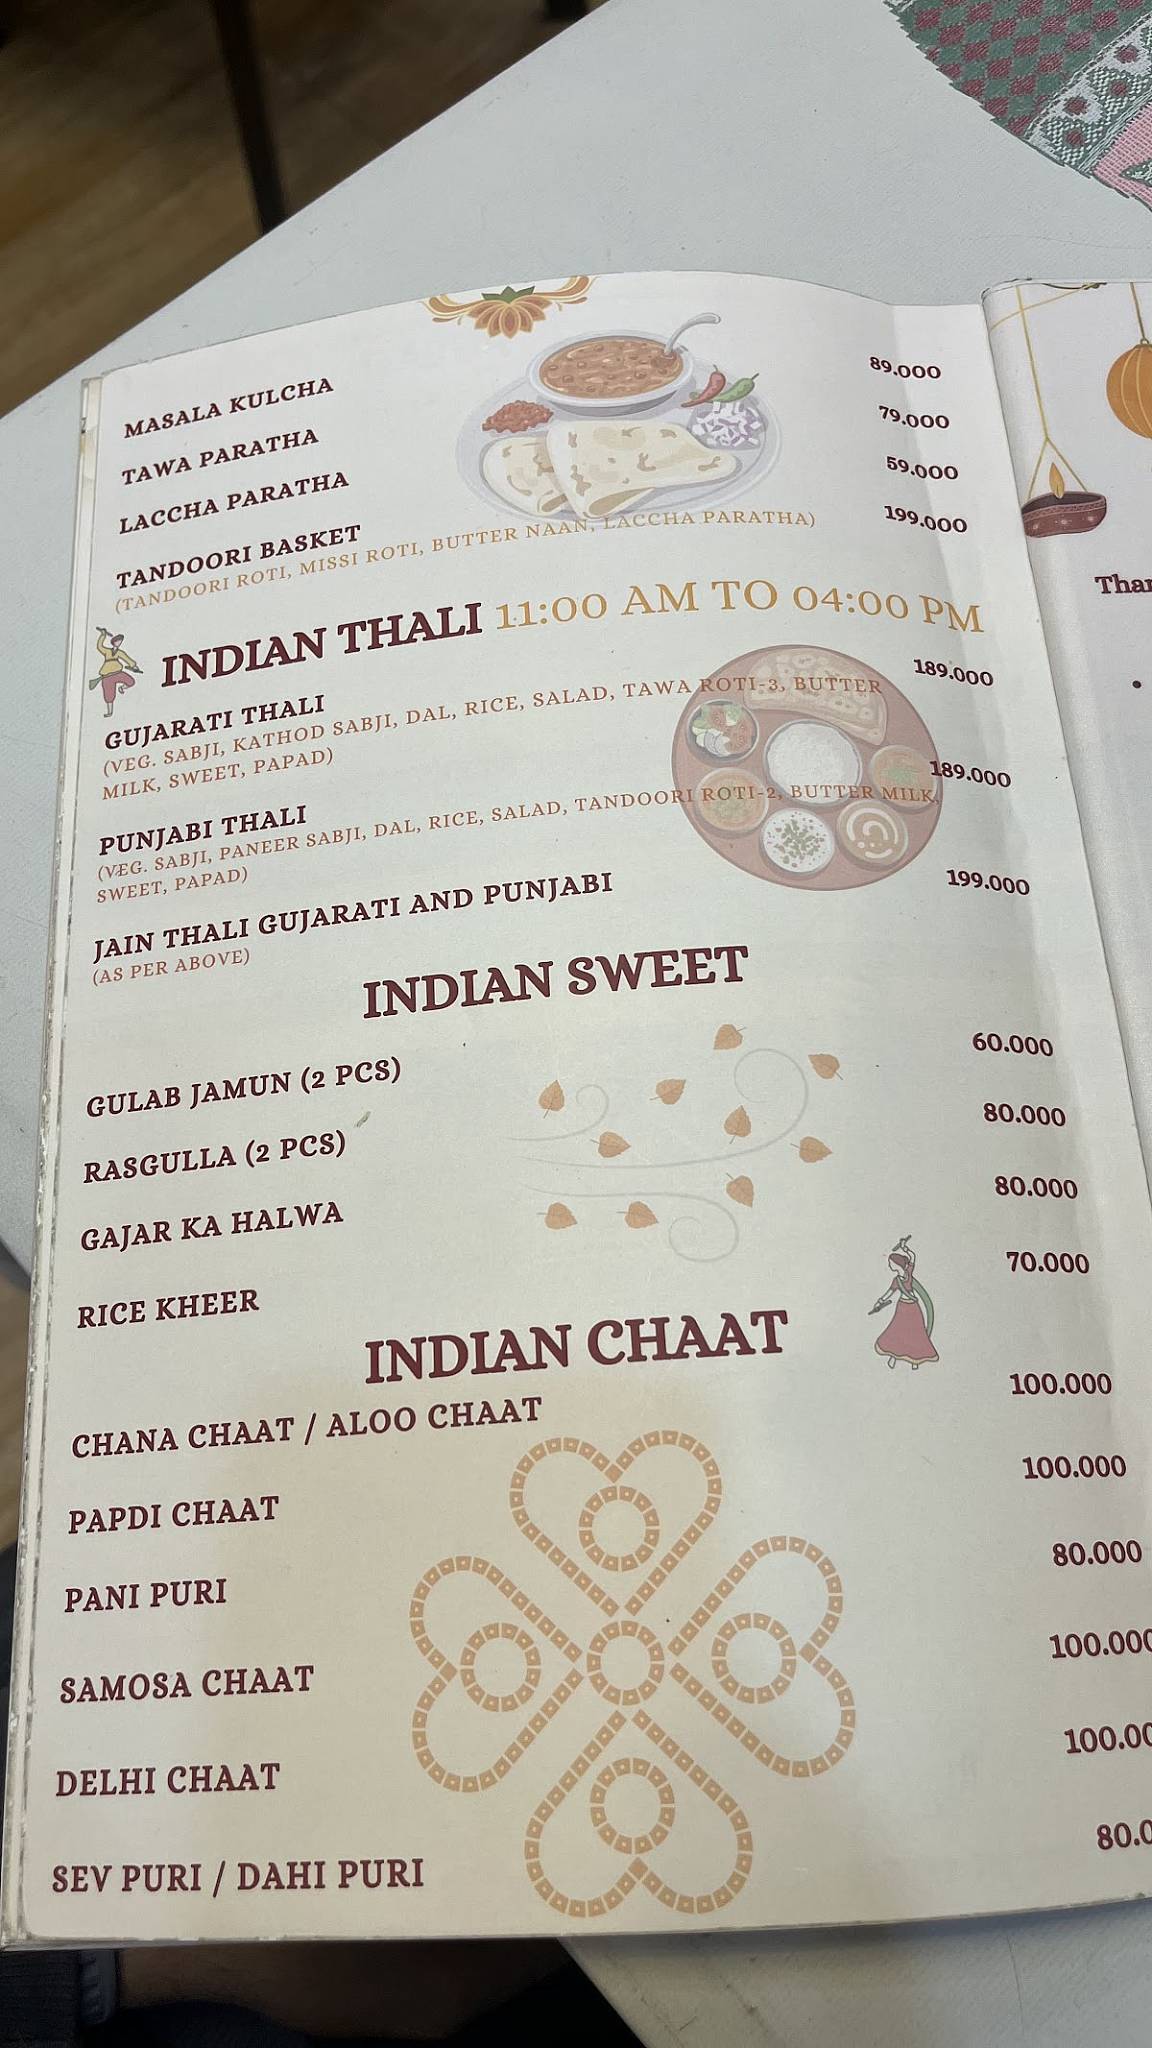 MASALA KULCHA 89.000
TAWA PARATHA 79.000
LACCHA PARATHA 59.000
TANDOORI BASKET 199.000
(TANDOORI ROTI, MISSI ROTI, BUTTER NAAN, LACCHA PARATHA)
INDIAN THALI 11:00 AM TO 04:00 PM
GUJARATI THALI 189.000
(VEG. SABJI, KATHOD SABJI, DAL, RICE, SALAD, TAWA ROTI-3, BUTTER
MILK, SWEET, PAPAD)
PUNJABI THALI 189.000
(VEG. SABJI, PANEER SABJI, DAL, RICE, SALAD, TANDOORI ROTI-2, BUTTER MILK,
SWEET, PAPAD)
JAIN THALI GUJARATI AND PUNJABI 199.000
(AS PER ABOVE)
INDIAN SWEET
GULAB JAMUN (2 PCS) 60.000
RASGULLA (2 PCS) 80.000
GAJAR KA HALWA 80.000
RICE KHEER 70.000
INDIAN CHAAT
CHANA CHAAT / ALOO CHAAT 100.000
PAPDI CHAAT 100.000
PANI PURI 80.000
SAMOSA CHAAT 100.000
DELHI CHAAT 100.00
SEV PURI / DAHI PURI 80.0